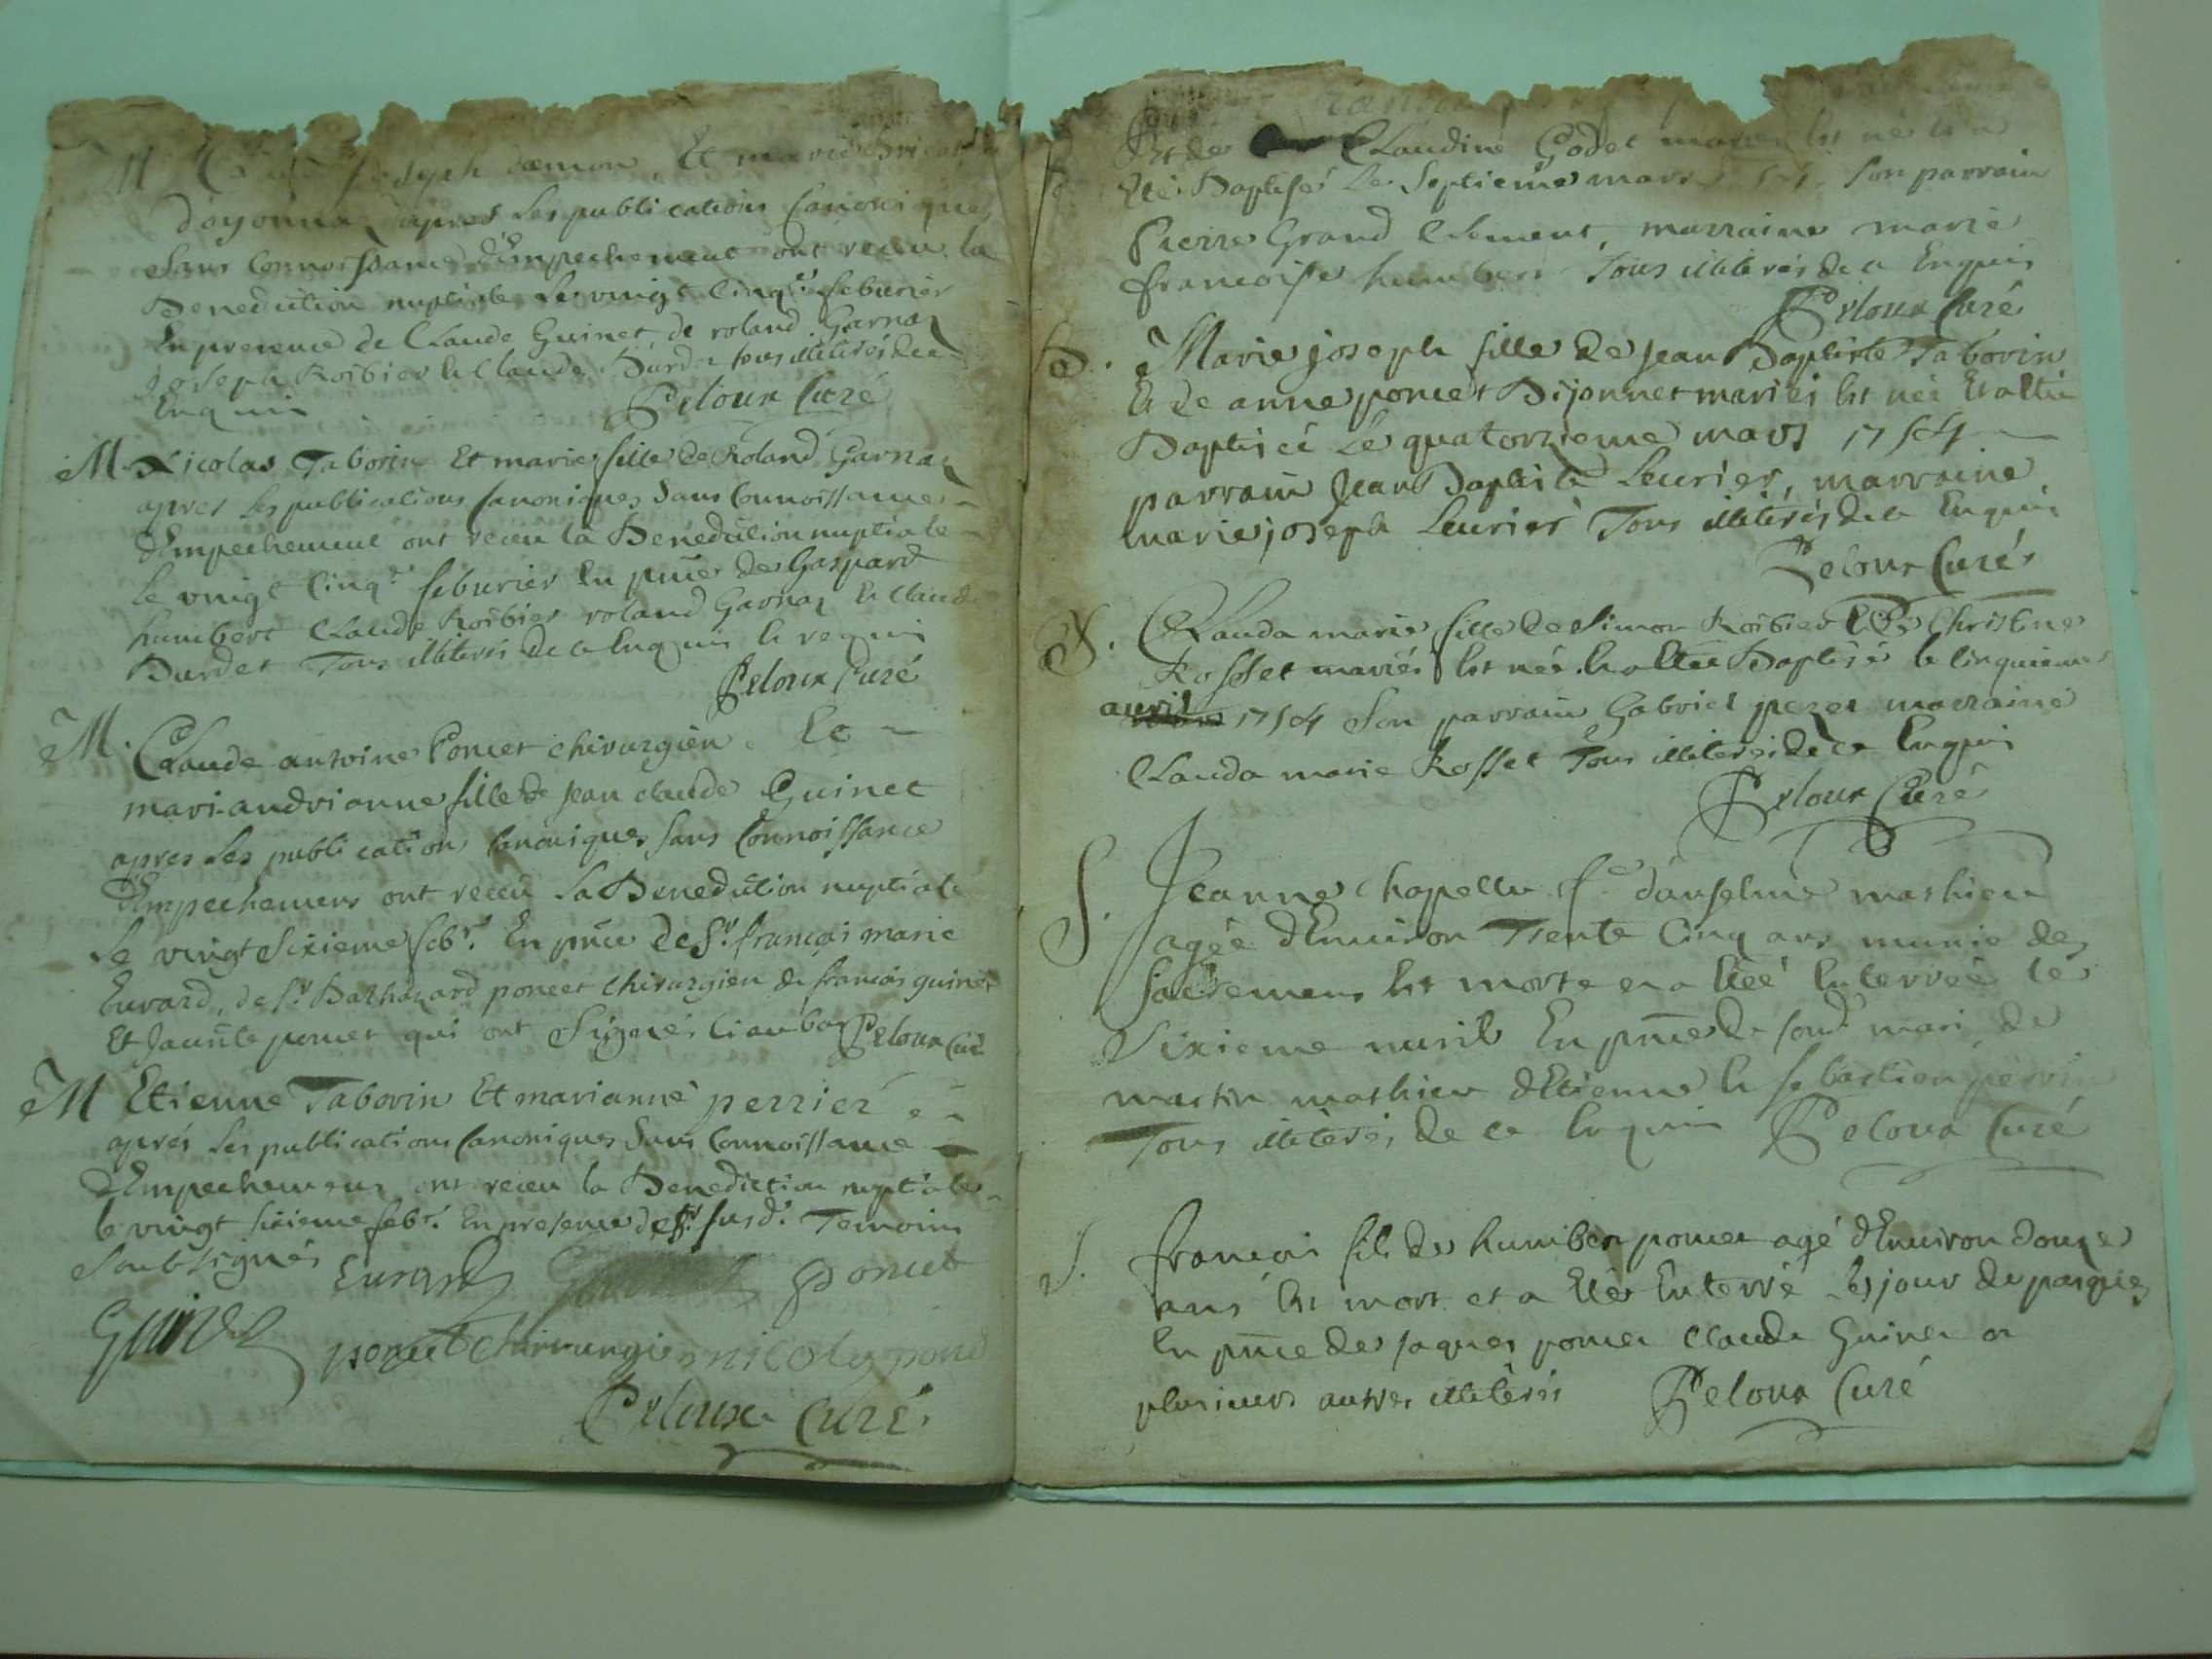 M Joseph damon, Et marie
d'oyonnaz apres les publications Canoniques
sans Connoissance d'Empechement ont receu la
Benediction nuptiale le vingt Cinqe. feburier
En presence de Claude Guinet, de roland Garnaz
Joseph Roibier et Claude Burdet tous illiterés de ce
Enquis Peloux Curé
M. Nicolas Taborin Et marie fille de Roland Garnaz
apres les publications Canoniques sans Connoissance
d'Empechement ont receu la Benediction nuptiale
le vingt Cinqe. feburier En pnce de Gaspard
humbert Claude Roibier roland Garnaz et Claude
Burdet Tous illiterés de ce Enquis et requis
Peloux Curé
M. Claude antoine Poncet chirurgien Et
mari-andrianne fille de Jean claude Guinet
apres les publications Canoniques sans Connoissance
d'Empechemens ont receu la Benediction nuptiale
le vingt Sixieme febr. En pnce de Sr. françois marie
Evrard, de Sr. Balthazard poncet chirurgien de francois guinet
Et poncet qui ont Signés ci au bas Peloux Curé
M Etienne Taborin Et marianne perrier
aprés les publications Canoniques Sans Connoissance
d'Empechemens ont receu la Benediction nuptiale
le vingt sixieme febr. En presence des susds. Temoins
Soubsignés Evrard poncet
Guinet poncet Chirurgien nicolas ponc
Peloux Curé
Et de Claudine Godet mariés Est né et a
Eté Baptisé le Septieme mars son parrain
Pierre Grand Clement, marraine marie
francoise humbert Tous illiterés de ce Enquis
Peloux Curé
B. Marie joseph fille de Jean Baptiste Taborin
Et de anne poncet Dijonnet mariés Est née Et a Eté
Baptisée le quatorzieme mars 1754
parrain Jean Baptiste Leurier, marraine
marie joseph Leurier Tous illiterés de ce Enquis
Peloux Curé
B. Clauda marie fille de Simon Roibier Et de Christine
Rosset mariés Est née Et a Eté Baptisée le Cinquieme
auril 1754 Son parrain Gabriel perret marraine
Clauda marie Rosset Tous illiterés de ce Enquis
Peloux Curé
S. Jeanne Chapelle fe. d'anselme mathieu
agée d'Enuiron Trente Cinq ans munie des
Sacremens Est morte et a Eté Enterrée le
Sixieme auril En pnce de sond. mari de
martin mathieu d'Etienne et sebastien perrin
Tous illiterés de ce Enquis Peloux Curé
S. francois fils de humbert poncet agé d'Enuiron douze
ans Est mort et a Eté Enterré le jour de pasques
En pnce de Jaques poncet Claude Guinet et
plusieurs autres illiterés Peloux Curé